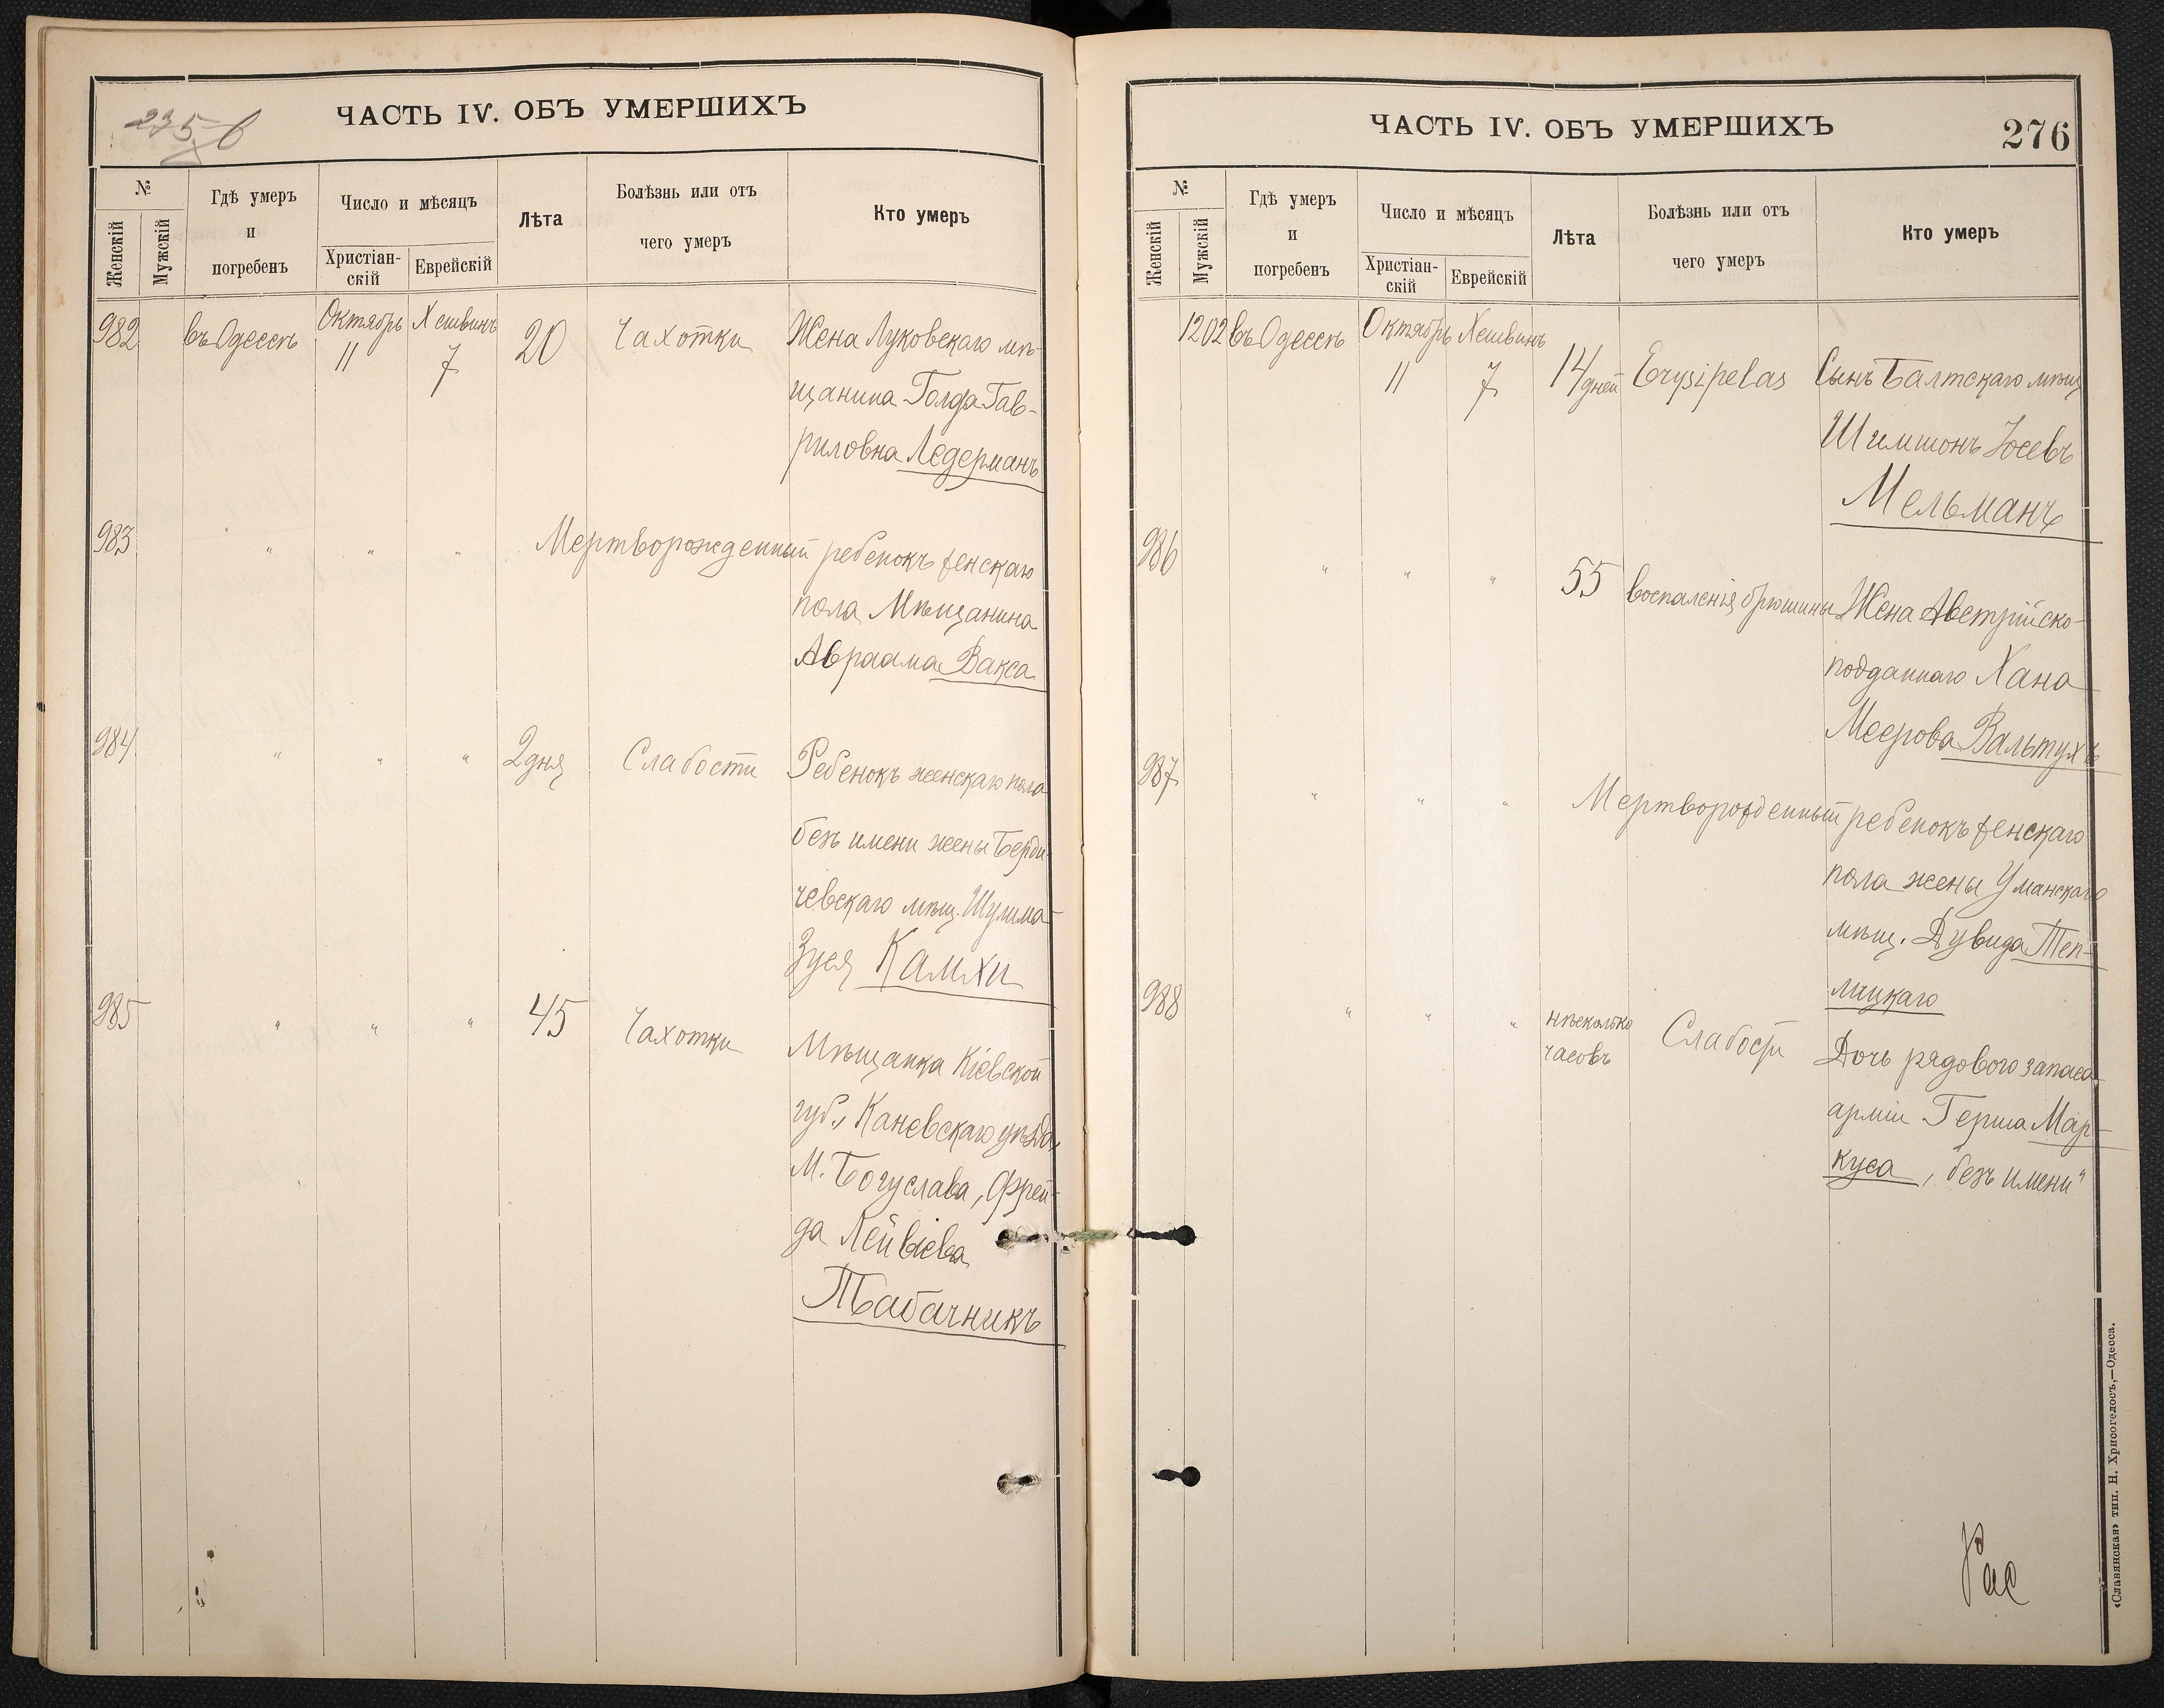 ЧАСТЬ IV. ОБЪ УМЕРШИХЪ
№
Женскій
Мужскій
Гдѣ умеръ
и
погребенъ
Число и мѣсяцъ
Христіан-
скій
Еврейскій
Лѣта
Болѣзнь или отъ
чего умеръ
Кто умеръ
982 въ Одессѣ Октябрь 11 Хешвинъ 7 20 Чахотки Жена Луковскаго мѣ-
щанина Голда Гав-
риловна Ледерманъ
983 " " " Мертворожденный ребенокъ женскаго
пола Мѣщанина
Авраама Вакса
984 " " " 2 дня Слабости Ребенокъ женскаго пола
безъ имени жены Берди-
чевскаго мѣщ. Шулима
Зуся Камхи
985 " " " 45 Чахотки Мѣщанка Кіевской
губ., Каневскаго уѣзда,
М. Богуслава, Фрей-
да Лейвіева
Табачникъ
ЧАСТЬ IV. ОБЪ УМЕРШИХЪ
276
№
Женскій
Мужскій
Гдѣ умеръ
и
погребенъ
Число и мѣсяцъ
Христіан-
скій
Еврейскій
Лѣта
Болѣзнь или отъ
чего умеръ
Кто умеръ
1202 въ Одессѣ Октябрь 11 Хешвинъ 7 14 дней Erysipelas Сынъ Балтскаго мѣщ
Шимшонъ Іосевъ
Мельманъ
986 " " " 55 воспаленія брюшины Жена Австрійско-
подданнаго Хана
Меерова Вальтухъ
987 " " " Мертворожденный ребенокъ женскаго
пола жены Уманскаго
мѣщ. Дувида Теп-
лицкаго
988 " " " нѣсколько
часовъ Слабости Дочь рядового запаса
арміи Герша Мар-
куса, безъ имени"
«Славянская» тип. Н. Хрисогелосъ,—Одесса.